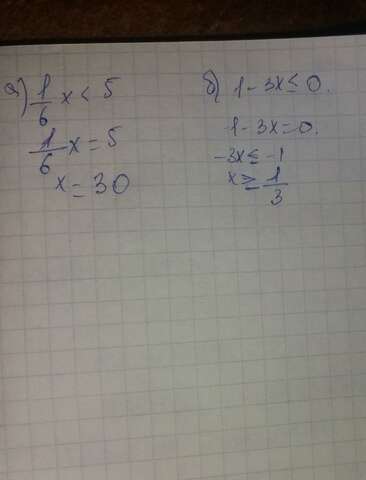 а) 1/6 x < 5
1/6 x = 5
x = 30
б) 1 - 3x ≤ 0.
1 - 3x = 0.
-3x ≤ -1
x ≥ 1/3